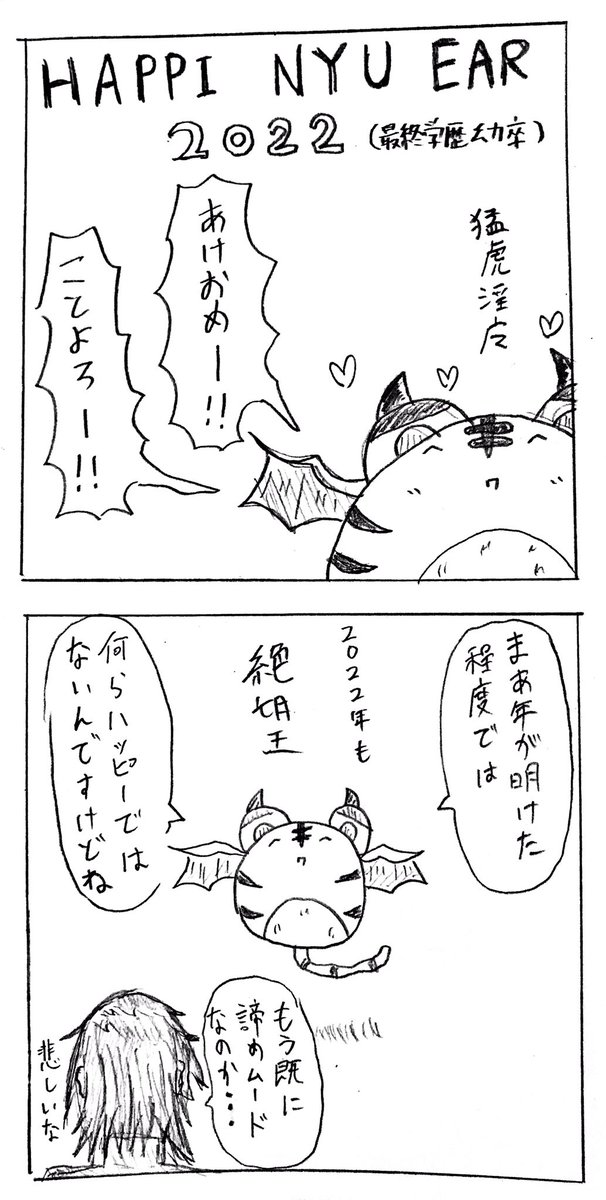 HAPPI NYU EAR
2022 (最終学歴幼卒)
猛虎淫
あけおめー!!
ことよろー!!
まあ年が明けた
程度では
2022年も
絶望
何らハッピーでは
ないんですけどね
もう既に
諦めムード
なのか・・・
悲しいな